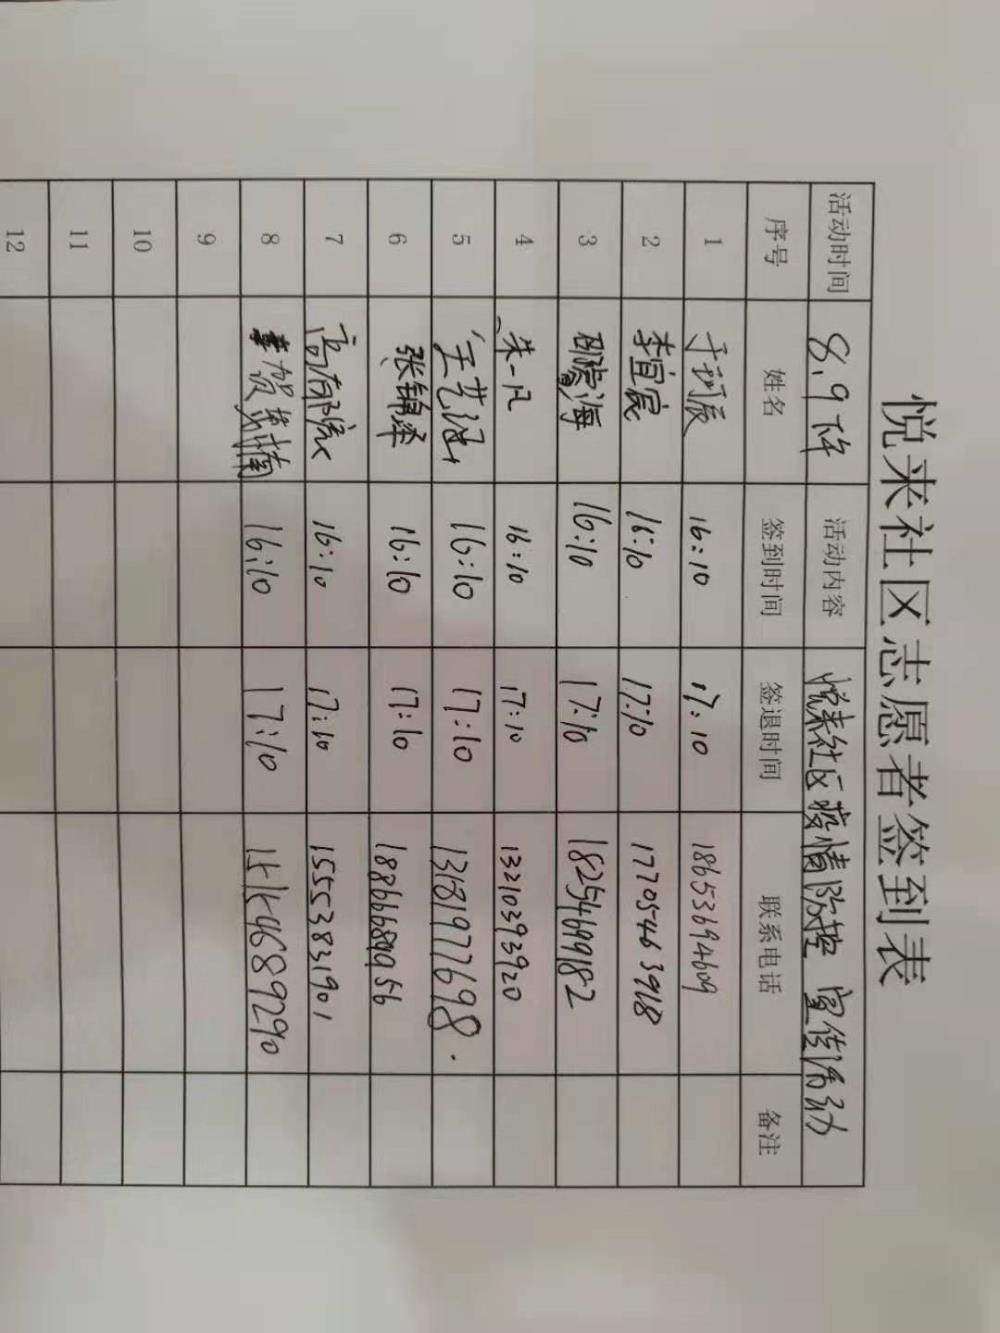 悦来社区志愿者签到表
活动时间 8.9下午 活动内容 悦来社区疫情防控 宣传活动
序号 姓名 签到时间 签退时间 联系电话 备注
1 于珂辰 16:10 17:10 18653694609
2 李宜宸 16:10 17:10 17705463918
3 16:10 17:10 18254699182
4 朱一凡 16:10 17:10 13210393920
5 16:10 17:10 13181977698
6 张锦泽 16:10 17:10 18866689956
7 16:10 17:10 15553831901
8 16:10 17:10
9
10
11
12